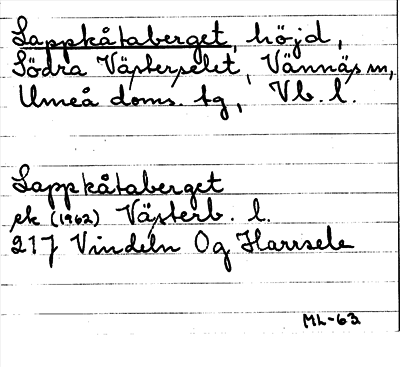 Lappkåtaberget, höjd,
Södra Västerselet, Vännäs sn,
Umeå doms. tg, Vb. l.
Lappkåtaberget
ek (1962) Västerb. l.
217 Vindeln Og Harrsele
ML-63